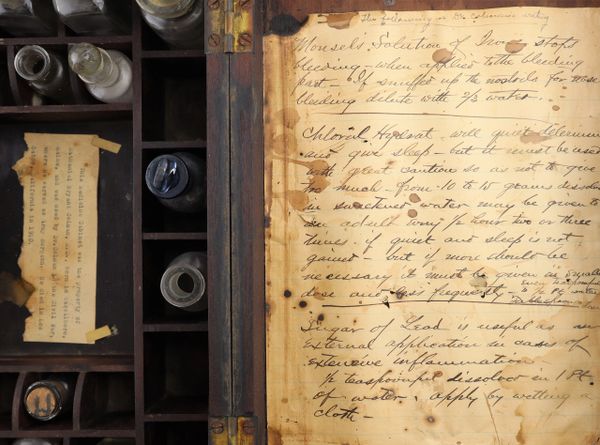 The following is Dr. writing
Monsel's Solution of Iron stops
bleeding - when applied to the bleeding
part - If snuffed up the nostrils for nose
bleeding dilute with 2/3 water.
Chloral Hydrat will quiet delirium
and give sleep - but it must be used
with great caution so as not to give
too much - from 10 to 15 grains dissolved
in sweetened water may be given to
an adult every 1/2 hour two or three
times. if quiet and sleep is not
gained - but if more should be
necessary it must be given in smaller
dose and less frequently -
Sugar of Lead is useful as an
external application in cases of
extensive inflammation
1/2 teaspoonful dissolved in 1 Pt.
of water & apply by wetting a
cloth -
This medicine cabinet was the property of
California in 1910.